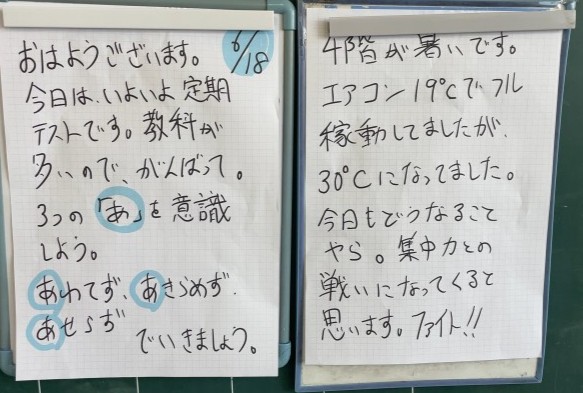 おはようございます。
6/18
今日は、いよいよ定期
テストです。教科が
多いので、がんばって。
3つの「あ」を意識
しよう。
あわてず、あきらめず、
あせらず
でいきましょう。
4階が暑いです。
エアコン19℃でフル
稼動してましたが、
30℃になってました。
今日もどうなること
やら。集中力との
戦いになってくると
思います。ファイト!!